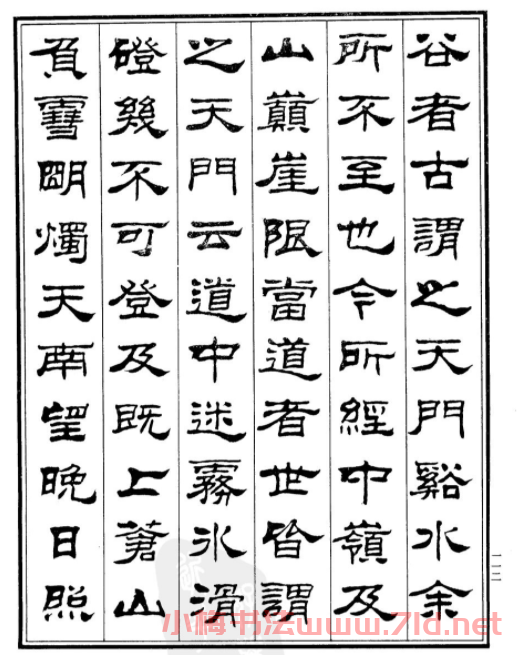 谷者古謂之天門谿水余
所不至也今所經中嶺及
山巔崖限當道者世皆謂
之天門云道中迷霧冰滑
磴幾不可登及既上蒼山
負雪明燭天南望晚日照
小梅书法www.7ld.net